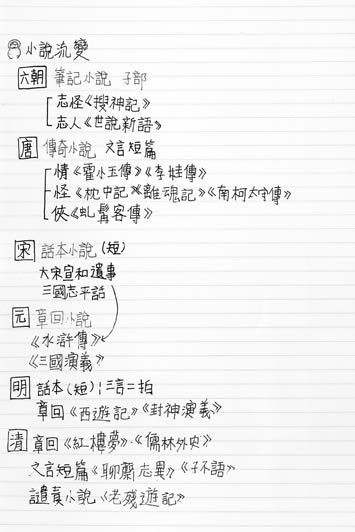 小說流變
六朝 筆記小說 子部
志怪《搜神記》
志人《世說新語》
唐 傳奇小說 文言短篇
情《霍小玉傳》《李娃傳》
怪《枕中記》《離魂記》《南柯太守傳》
俠《虬髯客傳》
宋 話本小說(短)
大宋宣和遺事
三國志平話
元 章回小說
《水滸傳》
《三國演義》
明 話本(短):三言二拍
章回《西遊記》《封神演義》
清 章回《紅樓夢》.《儒林外史》
文言短篇《聊齋志異》《子不語》
譴責小說《老殘遊記》